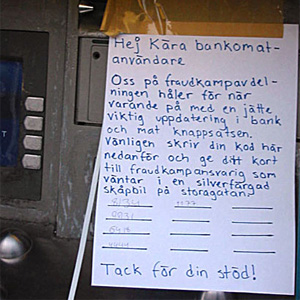 Hej Kära bankomat-
användare
Oss på fraudkampavdel-
ningen håler för när
varande på med en jätte
viktig uppdatering i bank
och mat knappsatsen.
Vänligen skriv din kod här
nedanför och ge ditt kort
till fraudkampansvarig som
väntar i en silverfärgad
skåpbil på storagatan.
8134 1177
0831
6918
4444
Tack för din stöd!